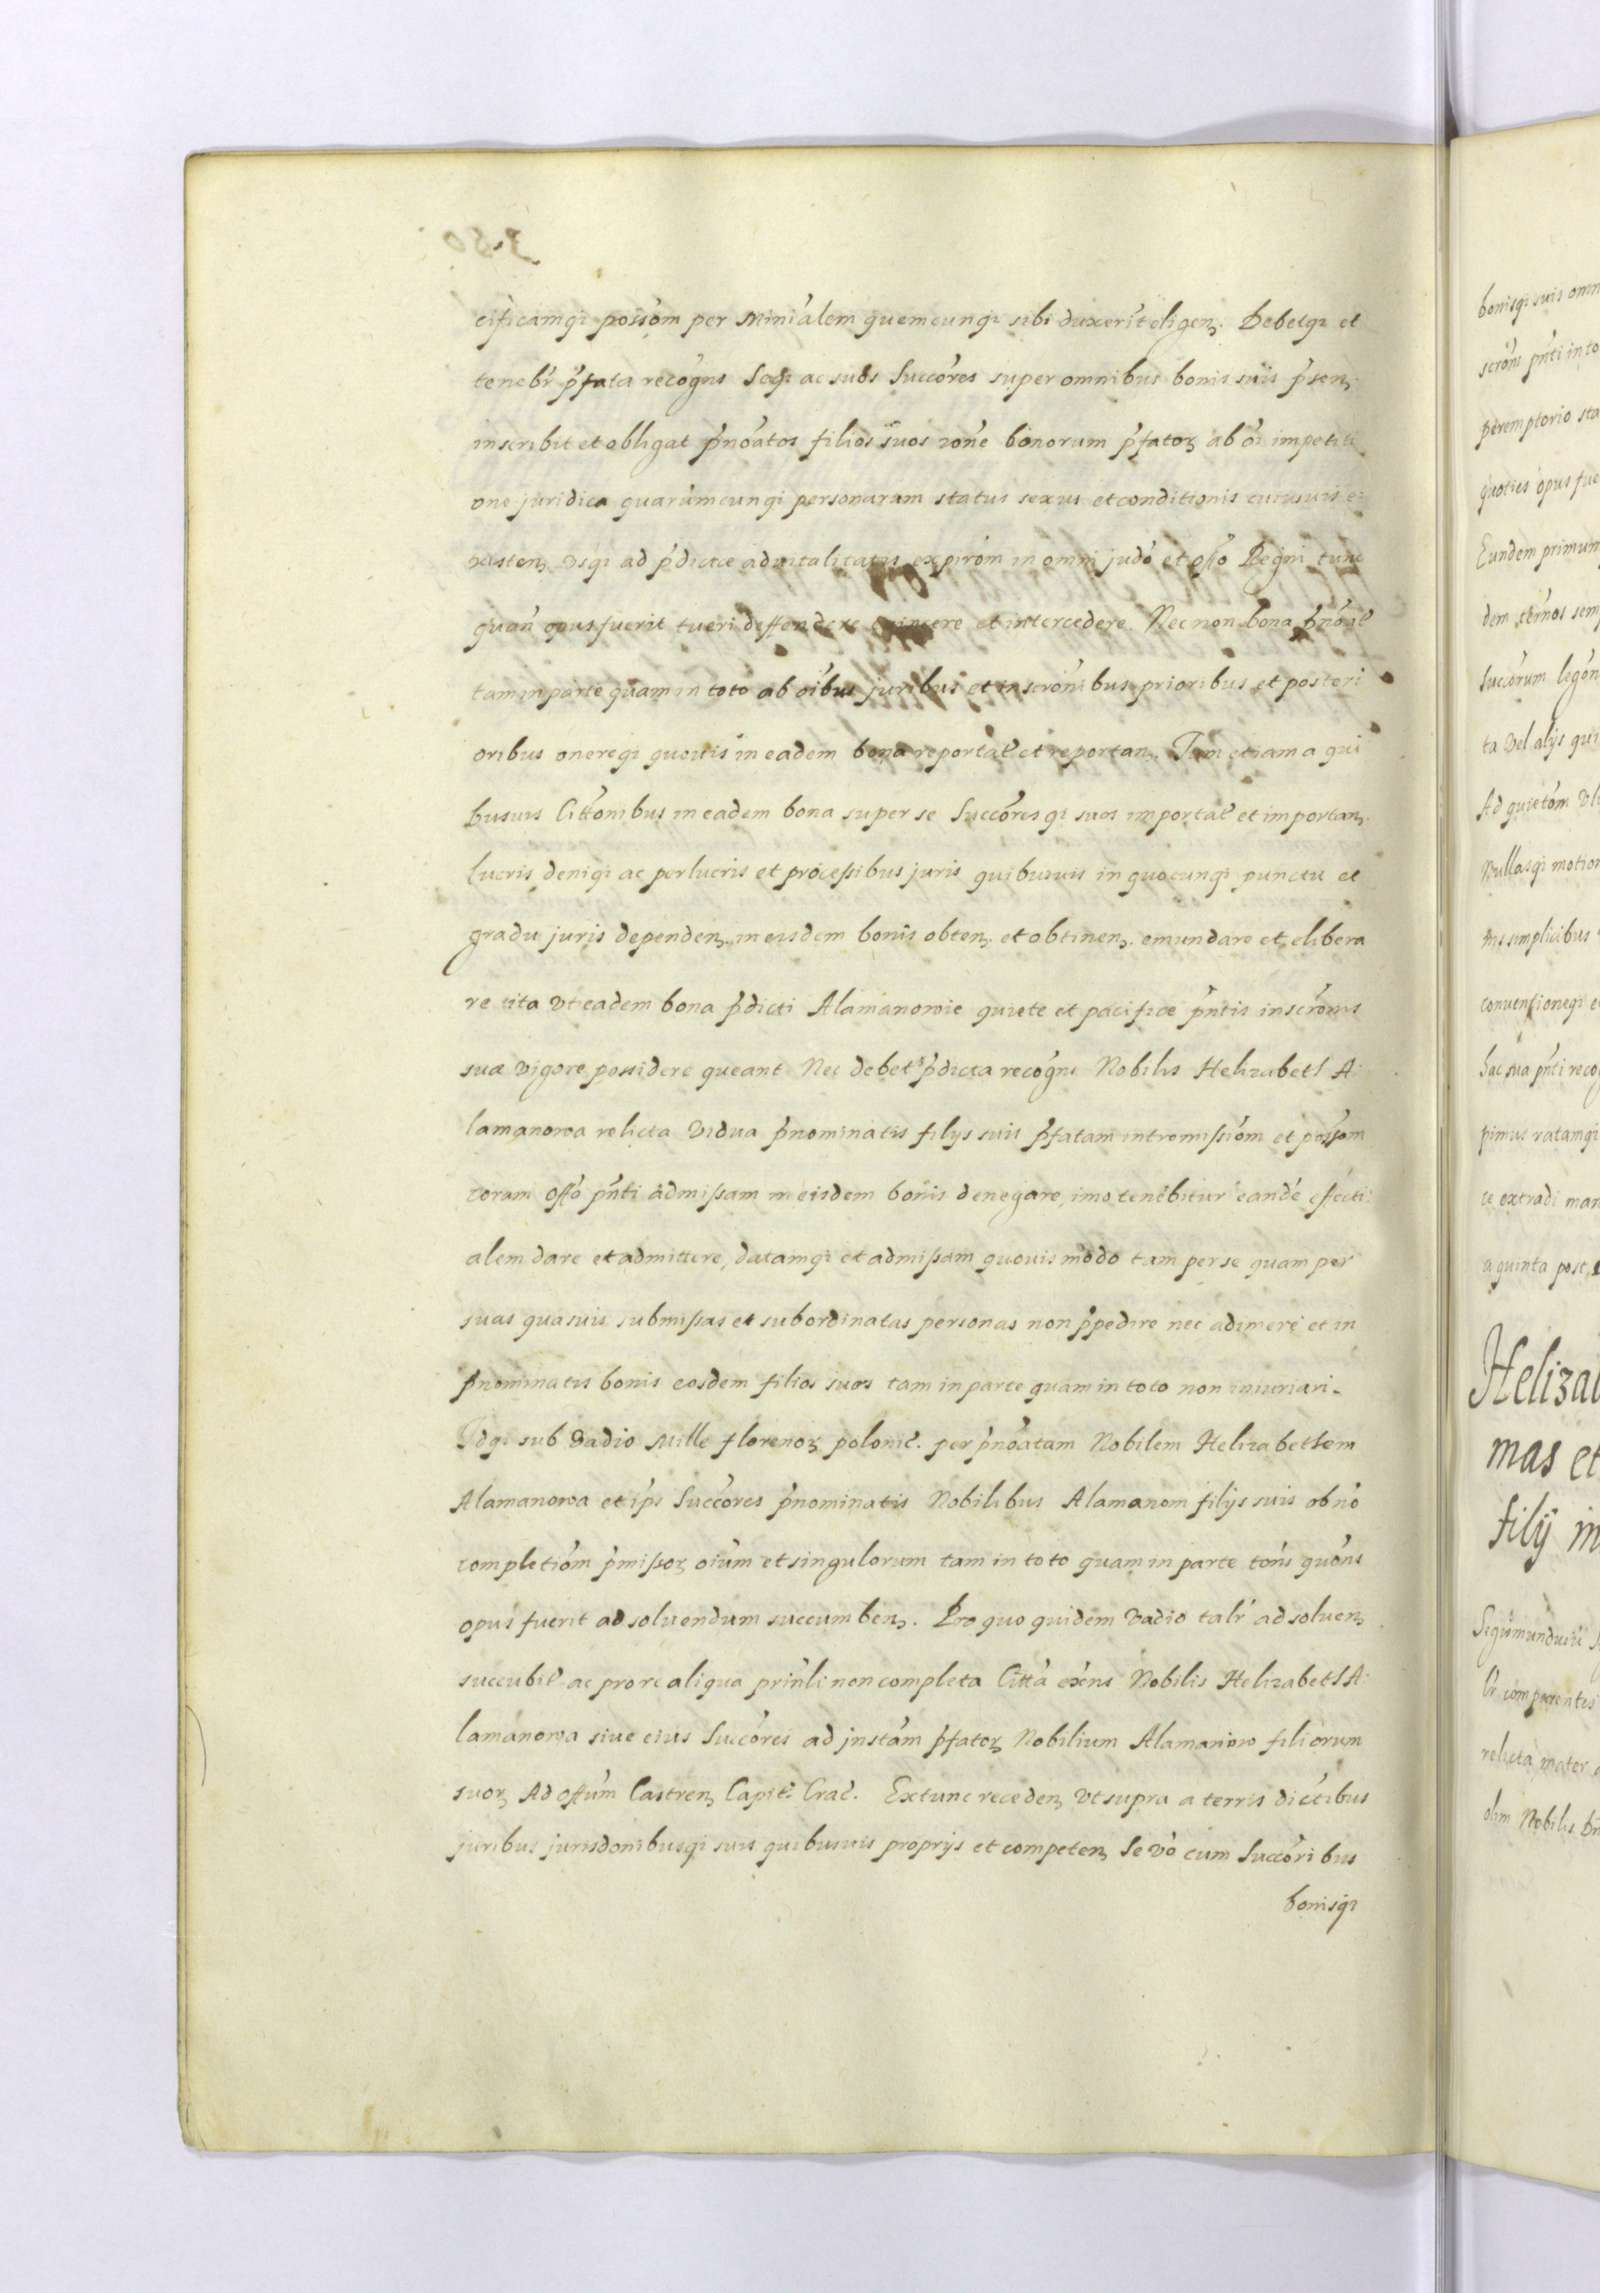 cificamqȝ possom per Minialem quemcunqȝ sibi duxerit eligenȝ. Debetqȝ et
tenebr pfata recogns Seqȝ ac suos Succores super omnibus bonis suis psenȝ.
inscribit et obligat pnoatos filios suos rone bonorum pfatoȝ ab oi impetiti
one juridica quarumcunqȝ personarum status sexus et conditionis cuiusuis e:
xistenȝ Vsqȝ ad pdictae aduitalitatis expirom in omni judo et offo Regni tunc
quan opus fuerit tueri deffendere euincere et intercedere. Nec non bona pnoat
tam in parte quam in toto ab oibus juribus et inscronibus prioribus et posteri
oribus onereqȝ quouis in eadem bona reportat et reportanȝ. Tam etiam a qui
busuis Cittonibus in eadem bona super se Succoresqȝ suos importat et importanȝ.
lucris deniqȝ ac perlucris et processibus juris quibusuis in quocunqȝ punctu et
gradu juris dependenȝ in eisdem bonis obtenȝ. et obtinenȝ. emundare et elibera
re ita Vt eadem bona pdicti Alamanowie quiete et pacifice pntis inscronis
suae vigore possidere queant Nec debet pdicta recogns Nobilis Helizabeth A:
lamanowa relicta Vidua pnominatis filys suis pfatam intromissiom et possom
coram offo pnti admissam in eisdem bonis denegare, imo tenebitur eande effecti:
alem dare et admittere, datamqȝ et admissam quouis modo tam per se quam per
suas quasuis submissas et subordinatas personas non ppedire nec adimere et in
pnominatis bonis eosdem filios suos tam in parte quam in toto non iniuriari.
Idqȝ sub Vadio Mille florenoȝ polonic. per pnoatam Nobilem Helizabethem
Alamanowa et ips Succores pnominatis Nobilibus Alamanom filijs suis ob no
completiom pmissoȝ oium et singulorum tam in toto quam in parte tons quons
opus fuerit ad soluendum succumbenȝ. Pro quo quidem Vadio talr ad soluenȝ
succubit ac pro re aliqua prinli non completa Citta exns Nobilis Helizabeth A:
lamanowa siue eius Succores ad jnstam pfatoȝ Nobilium Alamanow filiorum
suoȝ Ad offum Castrenȝ Capit. Crac. Extunc recedenȝ Vt supra a terris dictibus
juribus jurisdonibusqȝ suis quibusuis proprijs et competenȝ Se vo cum Succoribus
bonisqȝ
bonisqȝ suis omn
scrons pnti in to
peremptorio sta
quoties opus fue
Eundem primum
dem ternos sem
Succorum
ta Vel alijs qui
Ad quietom
Nullasqȝ motion
nis simplicibus
conuentioneqȝ e
hac sua pnti reco
pimus ratamqȝ
ce extradi man
a quinta post
Heliza
mas et
filij in
comparentis
relicta mater
olim Nobilis